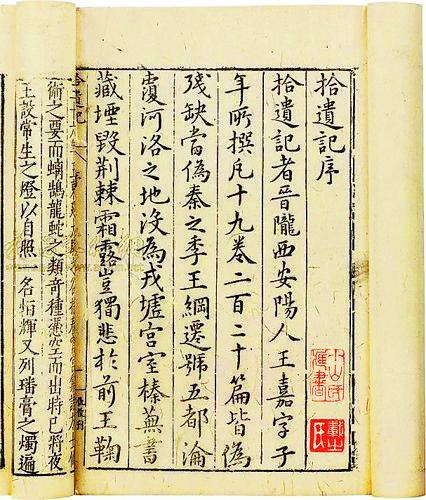 拾遺記序
拾遺記者晉隴西安陽人王嘉字子
年所撰凡十九卷二百二十篇皆偽
殘缺當偽秦之季王綱遷號五都淪
覆河洛之地沒為戎墟宮室榛蕪書
藏堙毀荆棘霜露豈獨悲於前王鞠
拾遺記
術之要而螭鵠龍蛇之類奇種憑空而出時已將夜
王設常生之燈以自照一名恒輝又列璠膏之燭遍